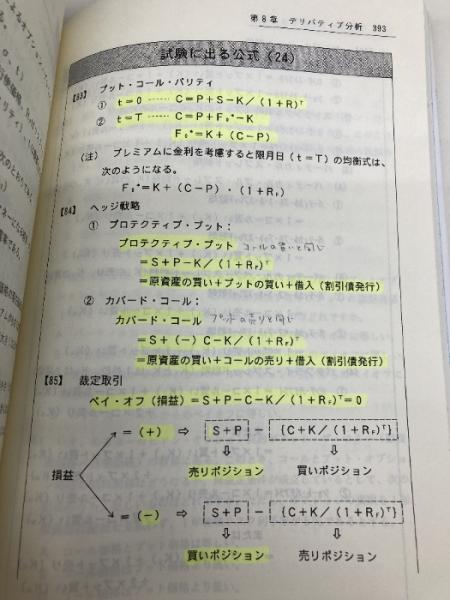 第8章 デリバティブ分析 393
試験に出る公式 (24)
【83】 プット・コール・パリティ
① t=0 …… C=P+S-K/(1+R)ᵀ
② t=T …… C=P+F₀*-K
F₀*=K+(C-P)
(注) プレミアムに金利を考慮すると限月日(t=T)の均衡式は、
次のようになる。
F₀*=K+(C-P)・(1+R_F)
【84】 ヘッジ戦略
① プロテクティブ・プット:
プロテクティブ・プット コールの買いと同じ
=S+P-K/(1+R_F)ᵀ
=原資産の買い+プットの買い+借入(割引債発行)
② カバード・コール:
カバード・コール プットの売りと同じ
=S+(-)C-K/(1+R_F)ᵀ
=原資産の買い+コールの売り+借入(割引債発行)
【85】 裁定取引
ペイ・オフ(損益)=S+P-C-K/(1+R_F)ᵀ=0
=(+) ⇨ S+P - {C+K/(1+R_F)ᵀ}
⇩ ⇩
売りポジション 買いポジション
損益
=(-) ⇨ S+P - {C+K/(1+R_F)ᵀ}
⇩ ⇩
買いポジション 売りポジション